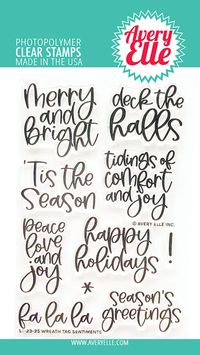 PHOTOPOLYMER
CLEAR STAMPS
MADE IN THE USA
Avery
Elle
merry
and
bright
deck the
halls
'Tis the
Season
tidings of
comfort
and joy
© AVERY ELLE INC.
peace
love
and
joy
happy
holidays
!
*
fa la la
season's
greetings
WREATH TAG SENTIMENTS
WWW.AVERYELLE.COM